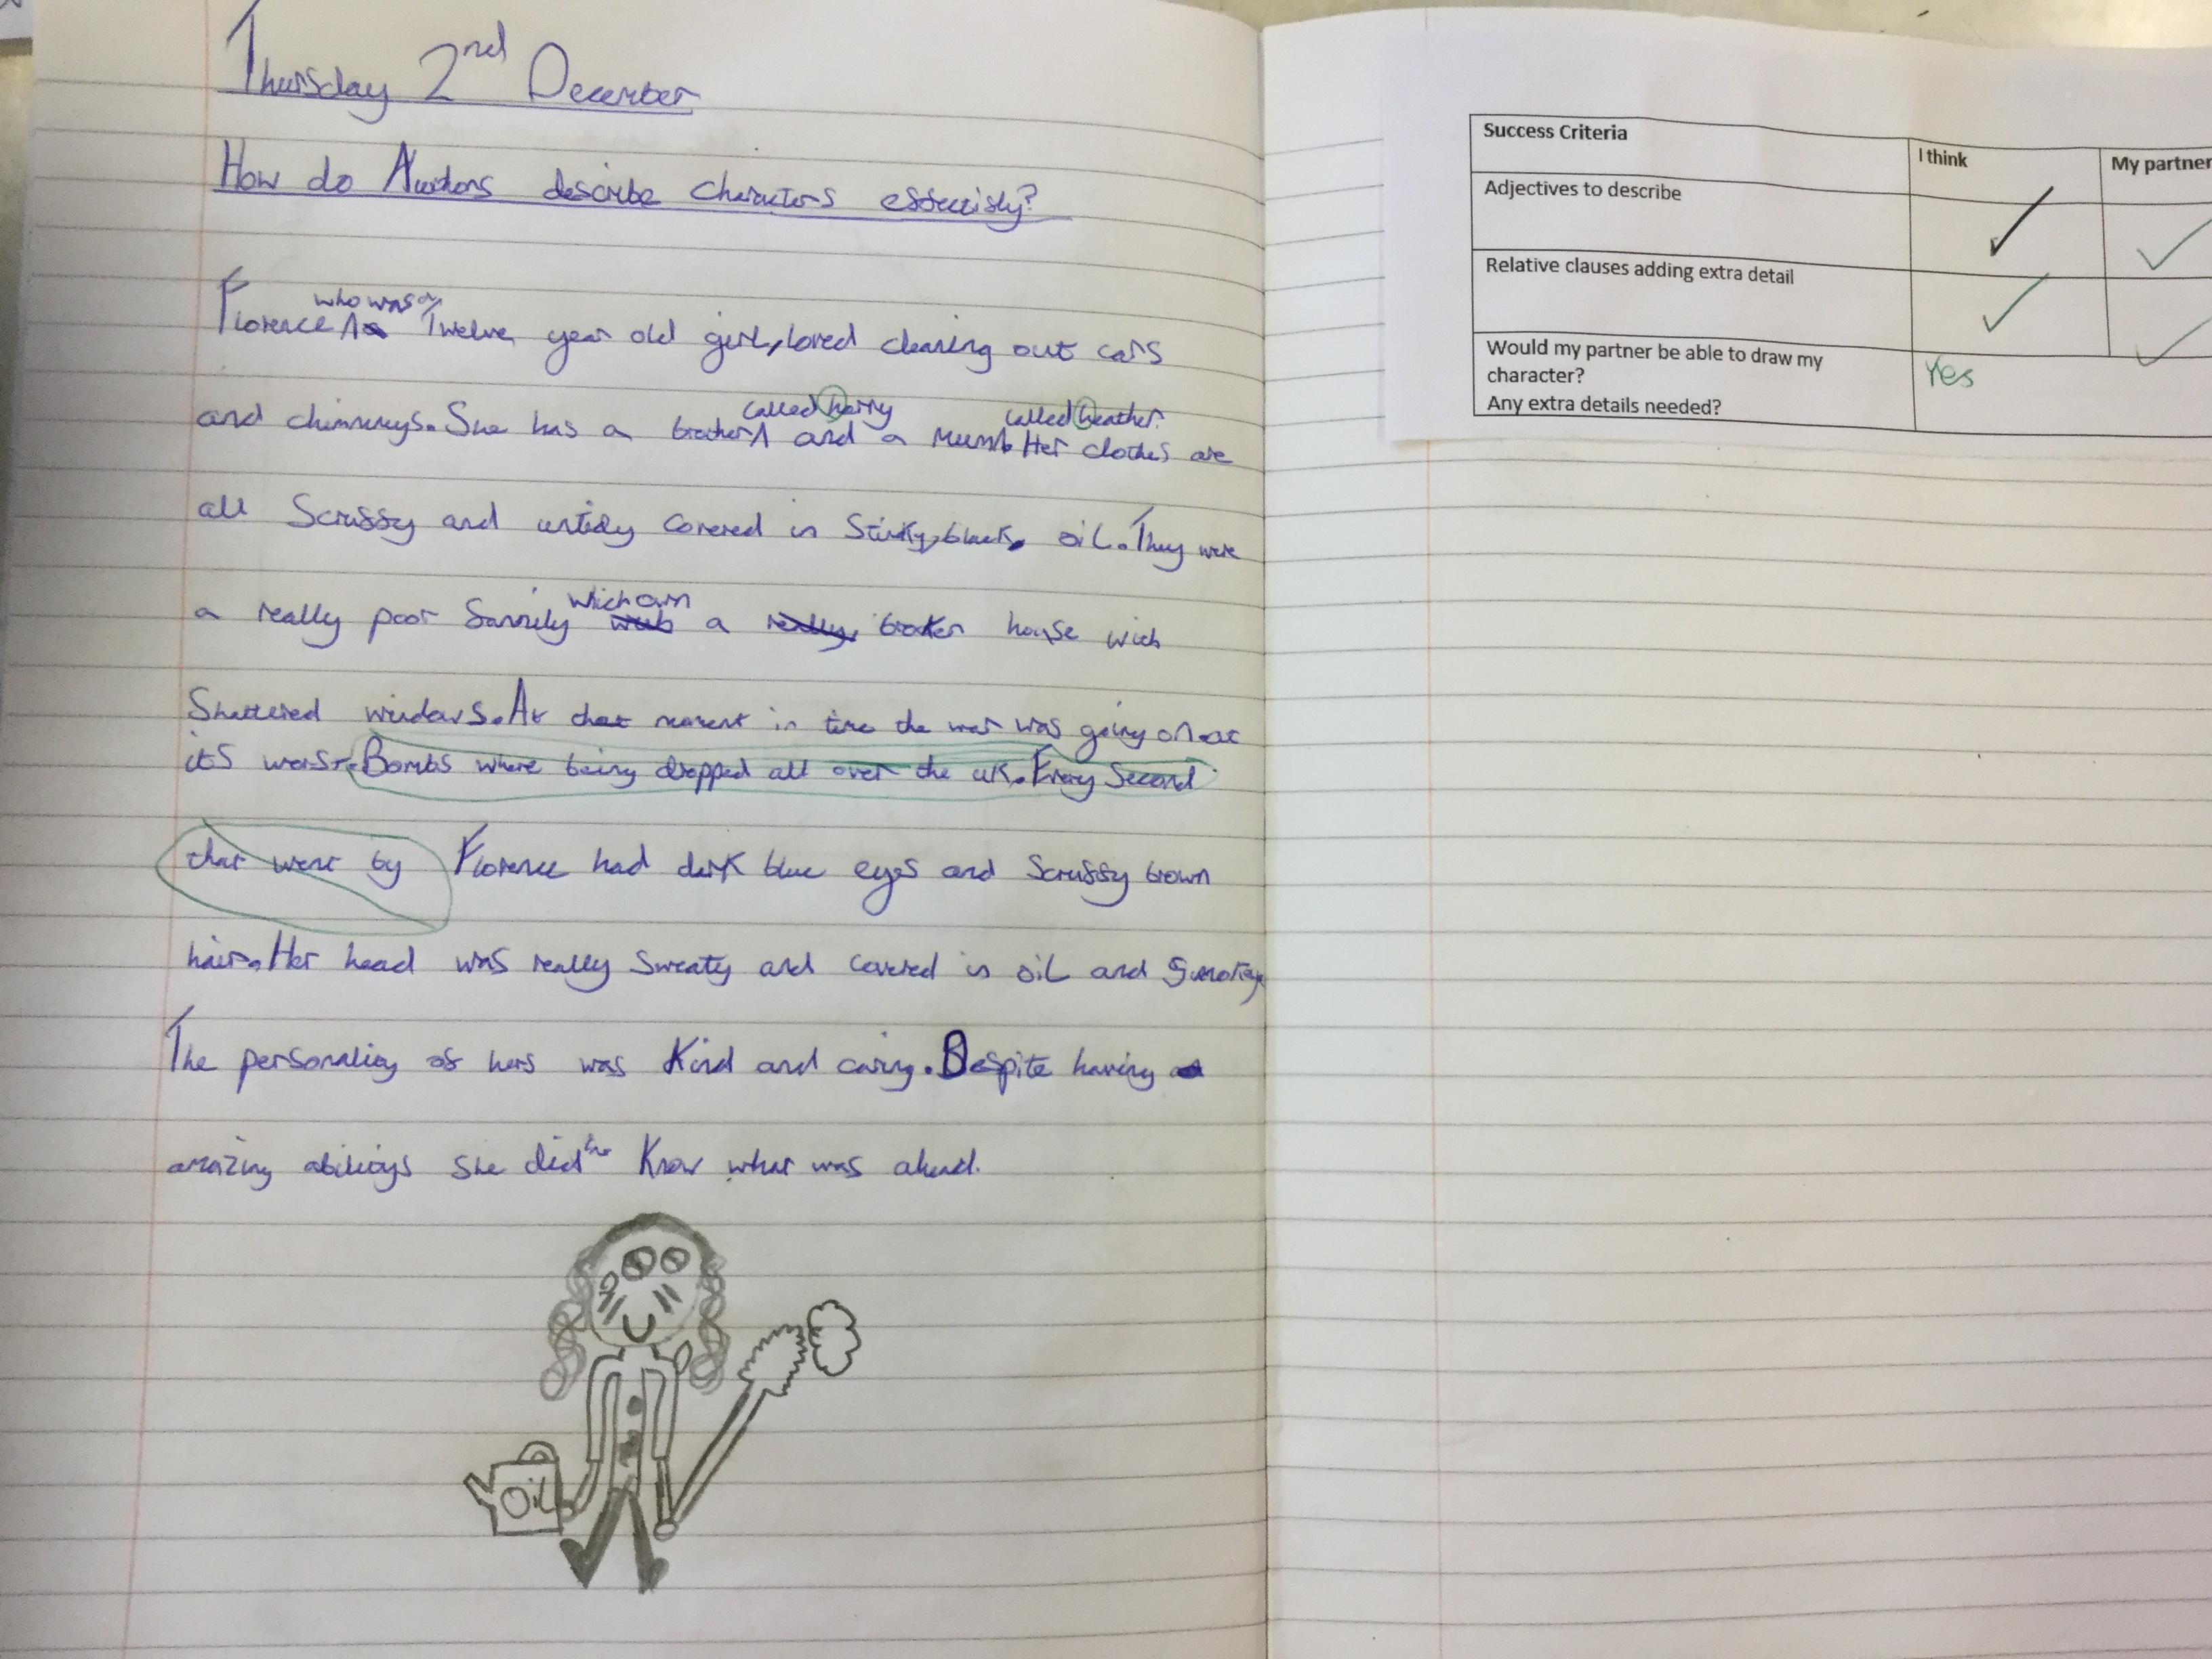 Thursday 2nd December
How do Authors describe characters effectivly?
who was a
Florence Twelve year old girl, loved cleaning out cars
called harry called heather.
and chimneys. She has a brother and a mum Her clothes are
all Scruffy and untidy covered in Stinky, black, oil. They were
which own
a really poor family with a really, broken house with
Shattered windows. At that moment in time the war was going on at
its worst. Bombs where being dropped all over the uk. Every Second
that went by Florence had dark blue eyes and Scruffy brown
hair. Her head was really Sweaty and covered in oil and
The personality of hers was Kind and caring. Despite having a
amazing abilitys She did Know what was ahead.
OiL
Success Criteria
I think
My partner
Adjectives to describe
Relative clauses adding extra detail
Would my partner be able to draw my
character?
Any extra details needed?
Yes